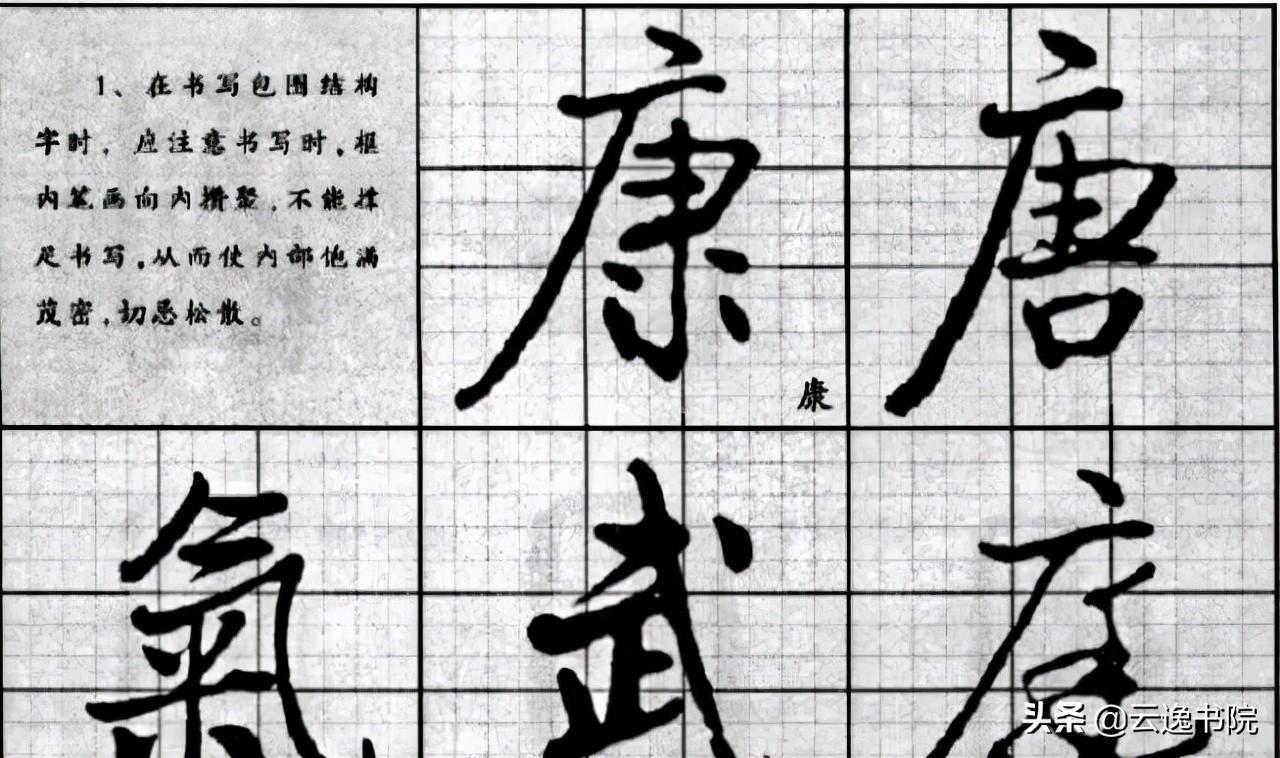 1、在书写包围结构
字时，应注意书写时，框
内笔画向内攒聚，不能撑
足书写，从而使内部饱满
茂密，切忌松散。
康
唐
康
氣
武
头条 @云逸书院